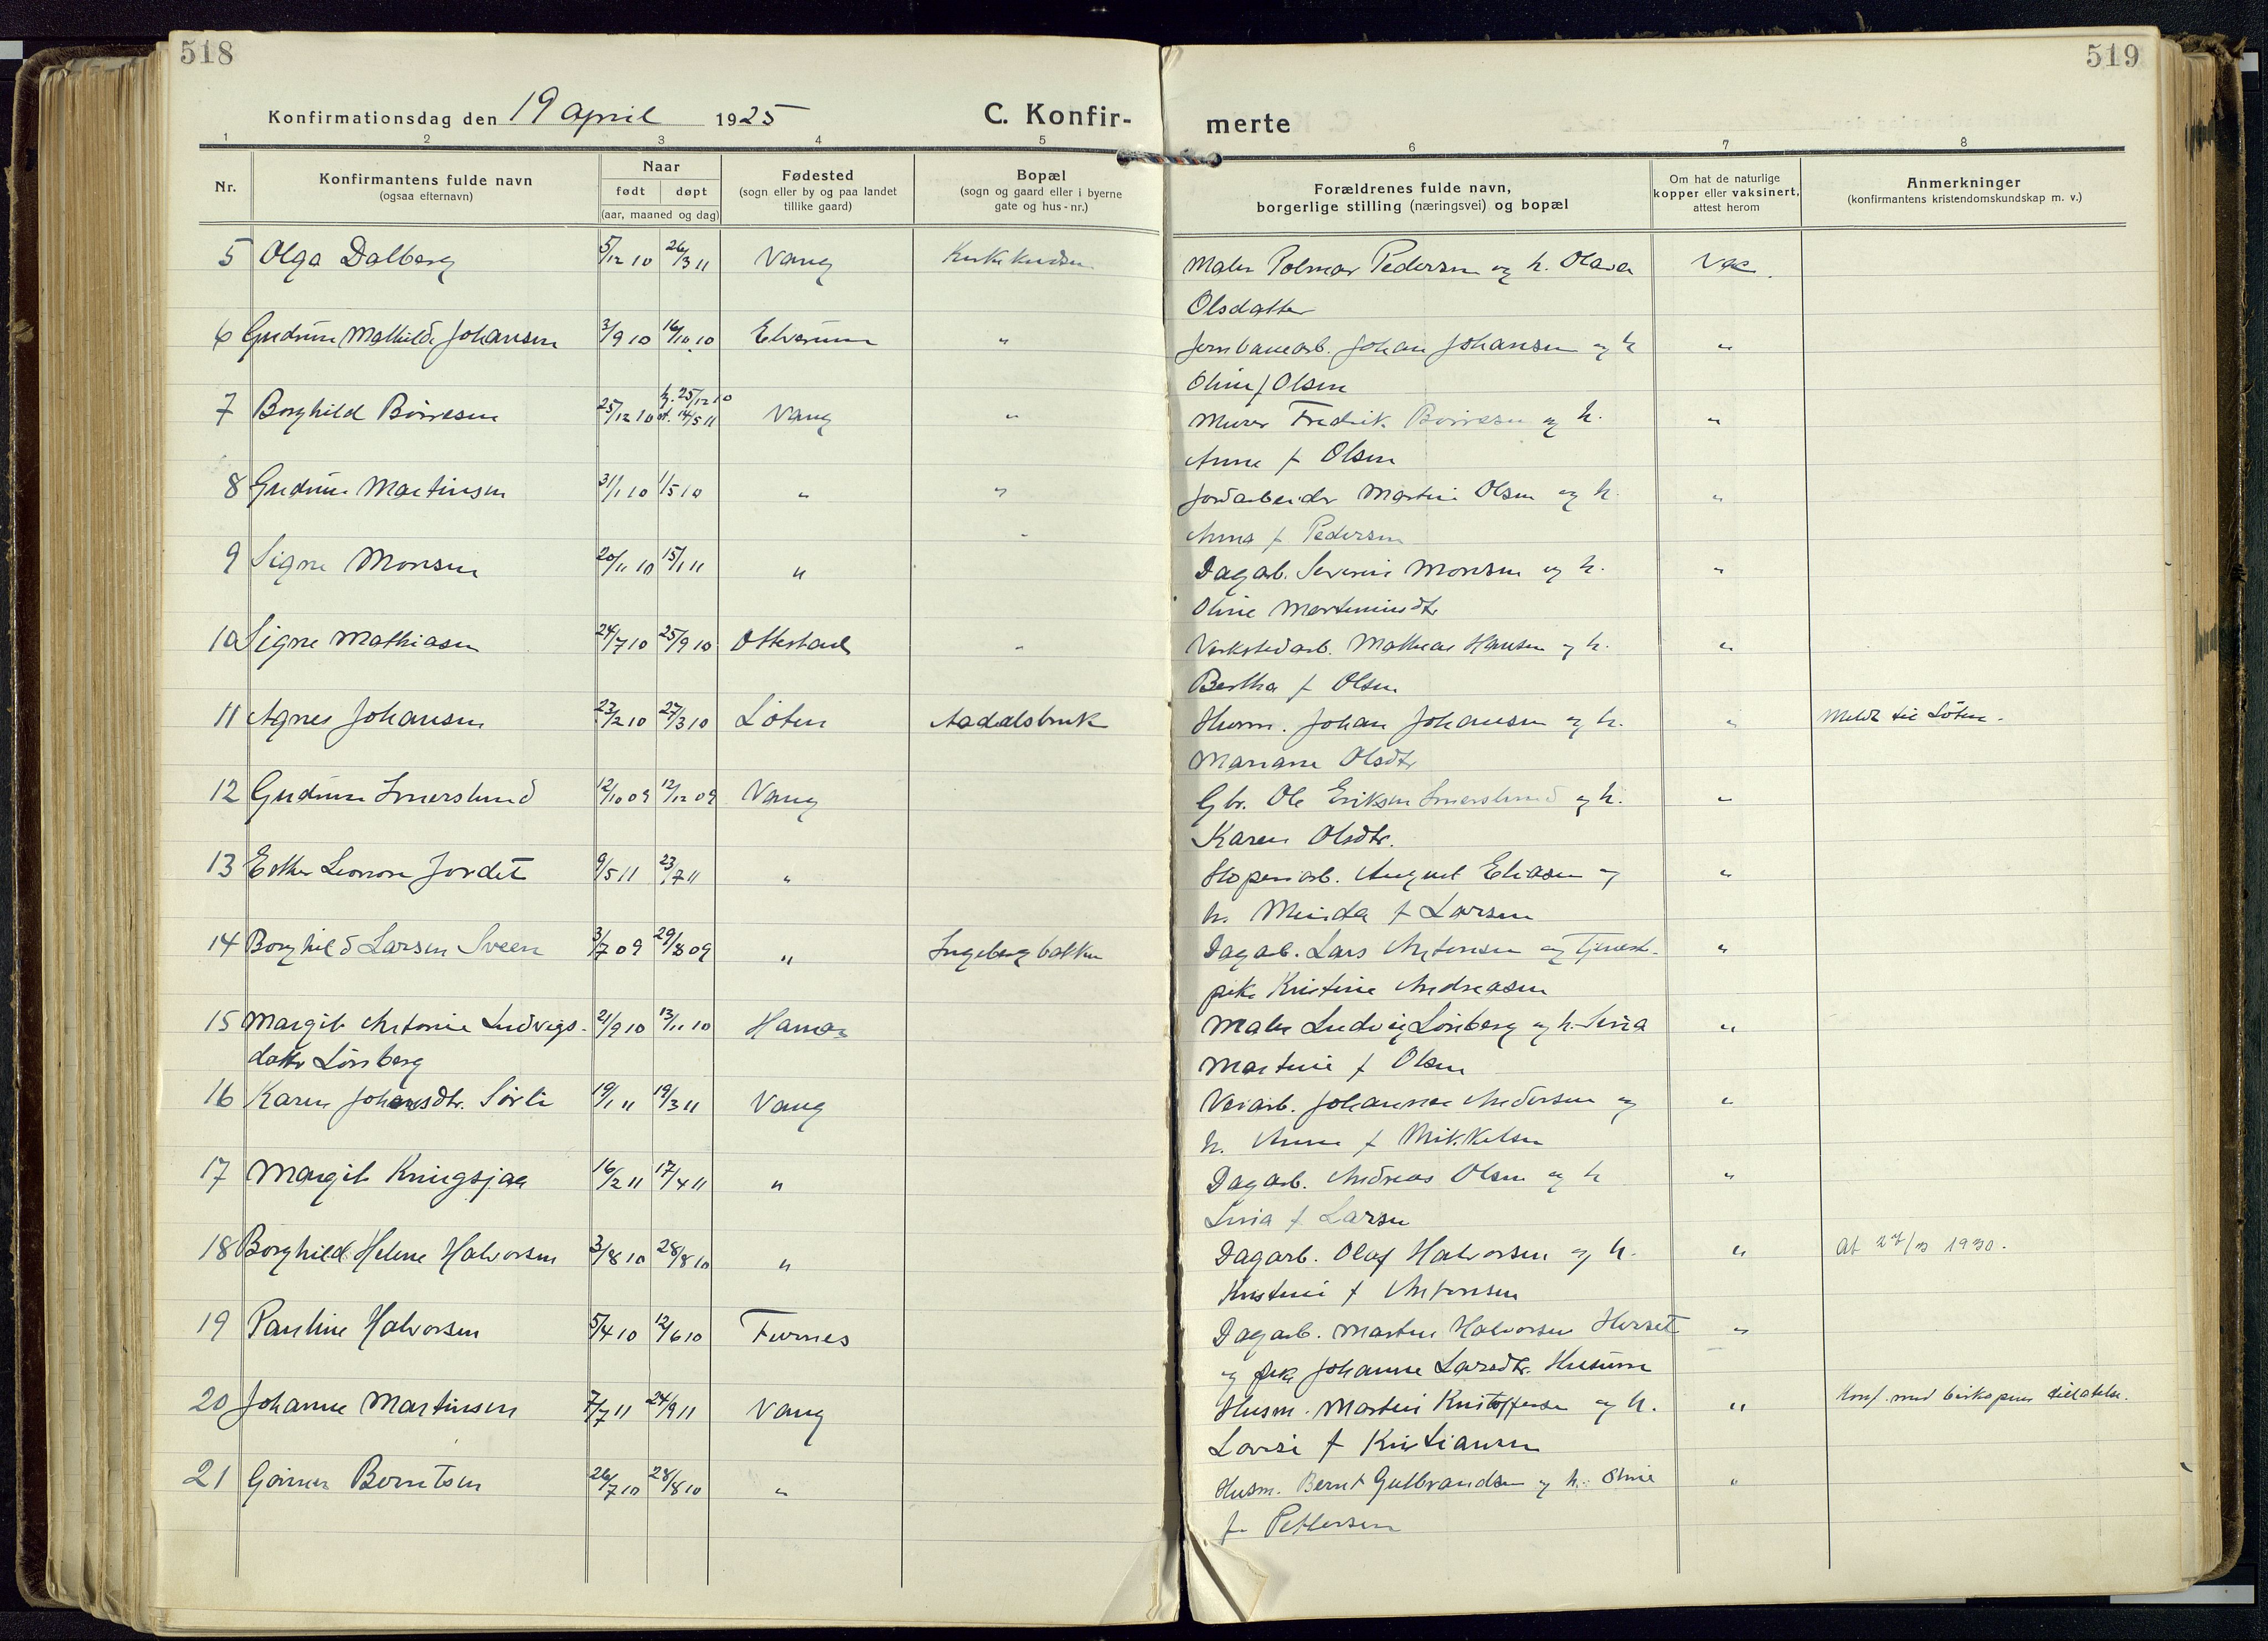 518
519
Konfirmationsdag den 19 april 1925
C. Konfir-
merte
1 2 3 4 5 6 7 8
Nr.
Konfirmantens fulde navn
(ogsaa efternavn)
Naar
født døpt
(aar, maaned og dag)
Fødested
(sogn eller by og paa landet
tillike gaard)
Bopæl
(sogn og gaard eller i byerne
gate og hus-nr.)
Forældrenes fulde navn,
borgerlige stilling (næringsvei) og bopæl
Om hat de naturlige
kopper eller vaksinert,
attest herom
Anmerkninger
(konfirmantens kristendomskundskap m. v.)
5 Olga Dalberg 5/12 10 26/3 11 Vang Maler Polmar Pedersen og h. Olava Vac.
Olsdatter
6 Gudrun Mathilde Johansen 3/9 10 16/10 10 Elverum " Jernbanearb. Johan Johansen og h "
Oline f Olsen
7 Borghild Børresen 25/12 10 h. 25/12 10 st. 14/5 11 Vang " Murer Fredrik Børresen og h. "
Anne f Olsen
8 Gudrun Martinsen 31/1 10 1/5 10 " " Jordarbeider Martin Olsen og h. "
Anna f Pedersen
9 Signe Monsen 20/11 10 15/1 11 " " Dagarb. Severin Monsen og h. "
Oline Martinusdtr
10 Signe Mathiasen 24/7 10 25/9 10 Ottestad " Verkstedarb. Mathias Hansen og h. "
Bertha f Olsen
11 Agnes Johansen 23/2 10 27/3 10 Løten Aadalsbruk Husm. Johan Johansen og h. " Meldt til Løten.
Mariane Olsdtr
12 Gudrun Imerslund 12/10 09 12/12 09 Vang Gbr. Ole Eriksen Imerslund og h. "
Karen Olsdtr.
13 Esther Leonora Jordet 9/5 11 23/7 11 " Støperiarb. August Eliasen og "
h. Minda f Larsen
14 Borghild Larsen Sveen 3/7 09 29/8 09 " Ingebergbakken Dagarb. Lars Antonsen og Tjeneste-
pike Kristine Andreasen "
15 Margit Antonie Ludvigs- 21/9 10 13/11 10 Hamar Maler Ludvig Lønberg og h. Lina "
datter Lønberg Martine f Olsen
16 Karen Johansdtr. Sørli 19/1 11 19/3 11 Vang Veiarb. Johannes Andersen og "
h. Anne f Mikkelsen
17 Margit Kringsjaa 16/2 11 17/4 11 " Dagarb. Andreas Olsen og h "
Lina f Larsen
18 Borghild Helene Halvorsen 3/8 10 28/8 10 " Dagarb. Olaf Halvorsen og h. " At 27/3 1930.
Kristine f Antonsen
19 Pauline Halvorsen 5/4 10 12/6 10 Furnes Dagarb. Martin Halvorsen Herset "
og pike Johanne Larsdtr. Husum
20 Johanne Martinsen 7/7 11 24/9 11 Vang Husm. Martin Kristoffersen og h. " Konf. med biskopens tillatelse.
Lovise f Kristiansen
21 Gunnar Berntsen 26/7 10 28/8 10 " Husm. Bernt Gulbrandsen og h. Oline "
f. Pettersen